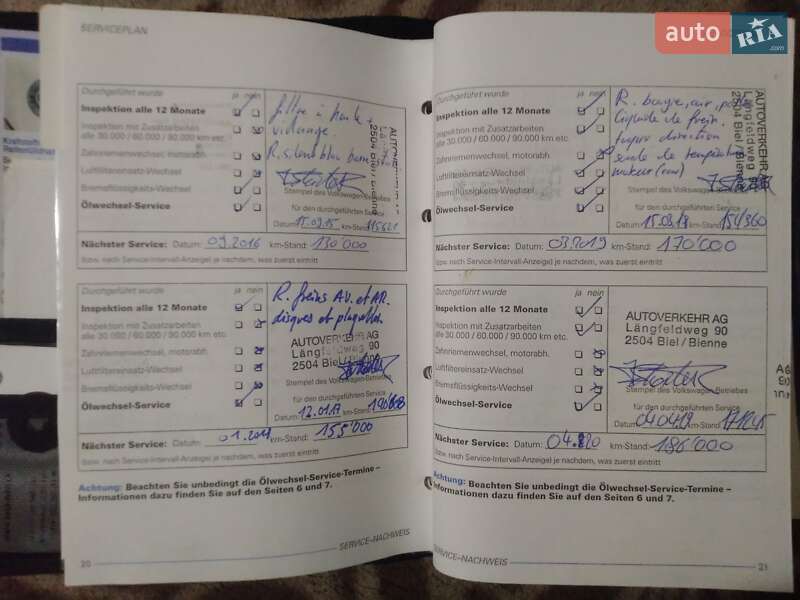 SERVICEPLAN
Durchgeführt wurde ja nein
Inspektion alle 12 Monate
Inspektion mit Zusatzarbeiten
alle 30.000 / 60.000 / 90.000 km etc.
Zahnriemenwechsel, motorabh.
Luftfiltereinsatz-Wechsel
Bremsflüssigkeits-Wechsel
Ölwechsel-Service
vidange.
AUTOVERKEHR AG
Längfeldweg 90
2504 Biel / Bienne
Stempel des Volkswagen-Betriebes
für den durchgeführten Service
Datum: 15.09.15 km-Stand:
Nächster Service: Datum: 09.2016 km-Stand: 130'000
(bzw. nach Service-Intervall-Anzeige) je nachdem, was zuerst eintritt
Durchgeführt wurde ja nein
Inspektion alle 12 Monate
Inspektion mit Zusatzarbeiten
alle 30.000 / 60.000 / 90.000 km etc.
Zahnriemenwechsel, motorabh.
Luftfiltereinsatz-Wechsel
Bremsflüssigkeits-Wechsel
Ölwechsel-Service
R. freins AV. et AR.
disques et plaquettes
AUTOVERKEHR AG
Längfeldweg 90
2504 Biel / Bienne
Stempel des Volkswagen-Betriebes
für den durchgeführten Service
Datum: 12.01.17 km-Stand:
Nächster Service: Datum: km-Stand: 155'000
(bzw. nach Service-Intervall-Anzeige) je nachdem, was zuerst eintritt
Achtung: Beachten Sie unbedingt die Ölwechsel-Service-Termine –
Informationen dazu finden Sie auf den Seiten 6 und 7.
20
SERVICE-NACHWEIS
auto RIA .com
Durchgeführt wurde ja nein
Inspektion alle 12 Monate
Inspektion mit Zusatzarbeiten
alle 30.000 / 60.000 / 90.000 km etc.
Zahnriemenwechsel, motorabh.
Luftfiltereinsatz-Wechsel
Bremsflüssigkeits-Wechsel
Ölwechsel-Service
Liquide de frein.
direction
sonde de température
moteur
AUTOVERKEHR AG
Längfeldweg 90
2504 Biel / Bienne
Stempel des Volkswagen-Betriebes
für den durchgeführten Service
Datum: km-Stand: 154'360
Nächster Service: Datum: 03.2019 km-Stand: 170'000
(bzw. nach Service-Intervall-Anzeige) je nachdem, was zuerst eintritt
Durchgeführt wurde ja nein
Inspektion alle 12 Monate
Inspektion mit Zusatzarbeiten
alle 30.000 / 60.000 / 90.000 km etc.
Zahnriemenwechsel, motorabh.
Luftfiltereinsatz-Wechsel
Bremsflüssigkeits-Wechsel
Ölwechsel-Service
AUTOVERKEHR AG
Längfeldweg 90
2504 Biel / Bienne
Stempel des Volkswagen-Betriebes
für den durchgeführten Service
Datum: 04.04.19 km-Stand:
Nächster Service: Datum: 04.220 km-Stand: 186'000
(bzw. nach Service-Intervall-Anzeige) je nachdem, was zuerst eintritt
Achtung: Beachten Sie unbedingt die Ölwechsel-Service-Termine –
Informationen dazu finden Sie auf den Seiten 6 und 7.
SERVICE-NACHWEIS
21